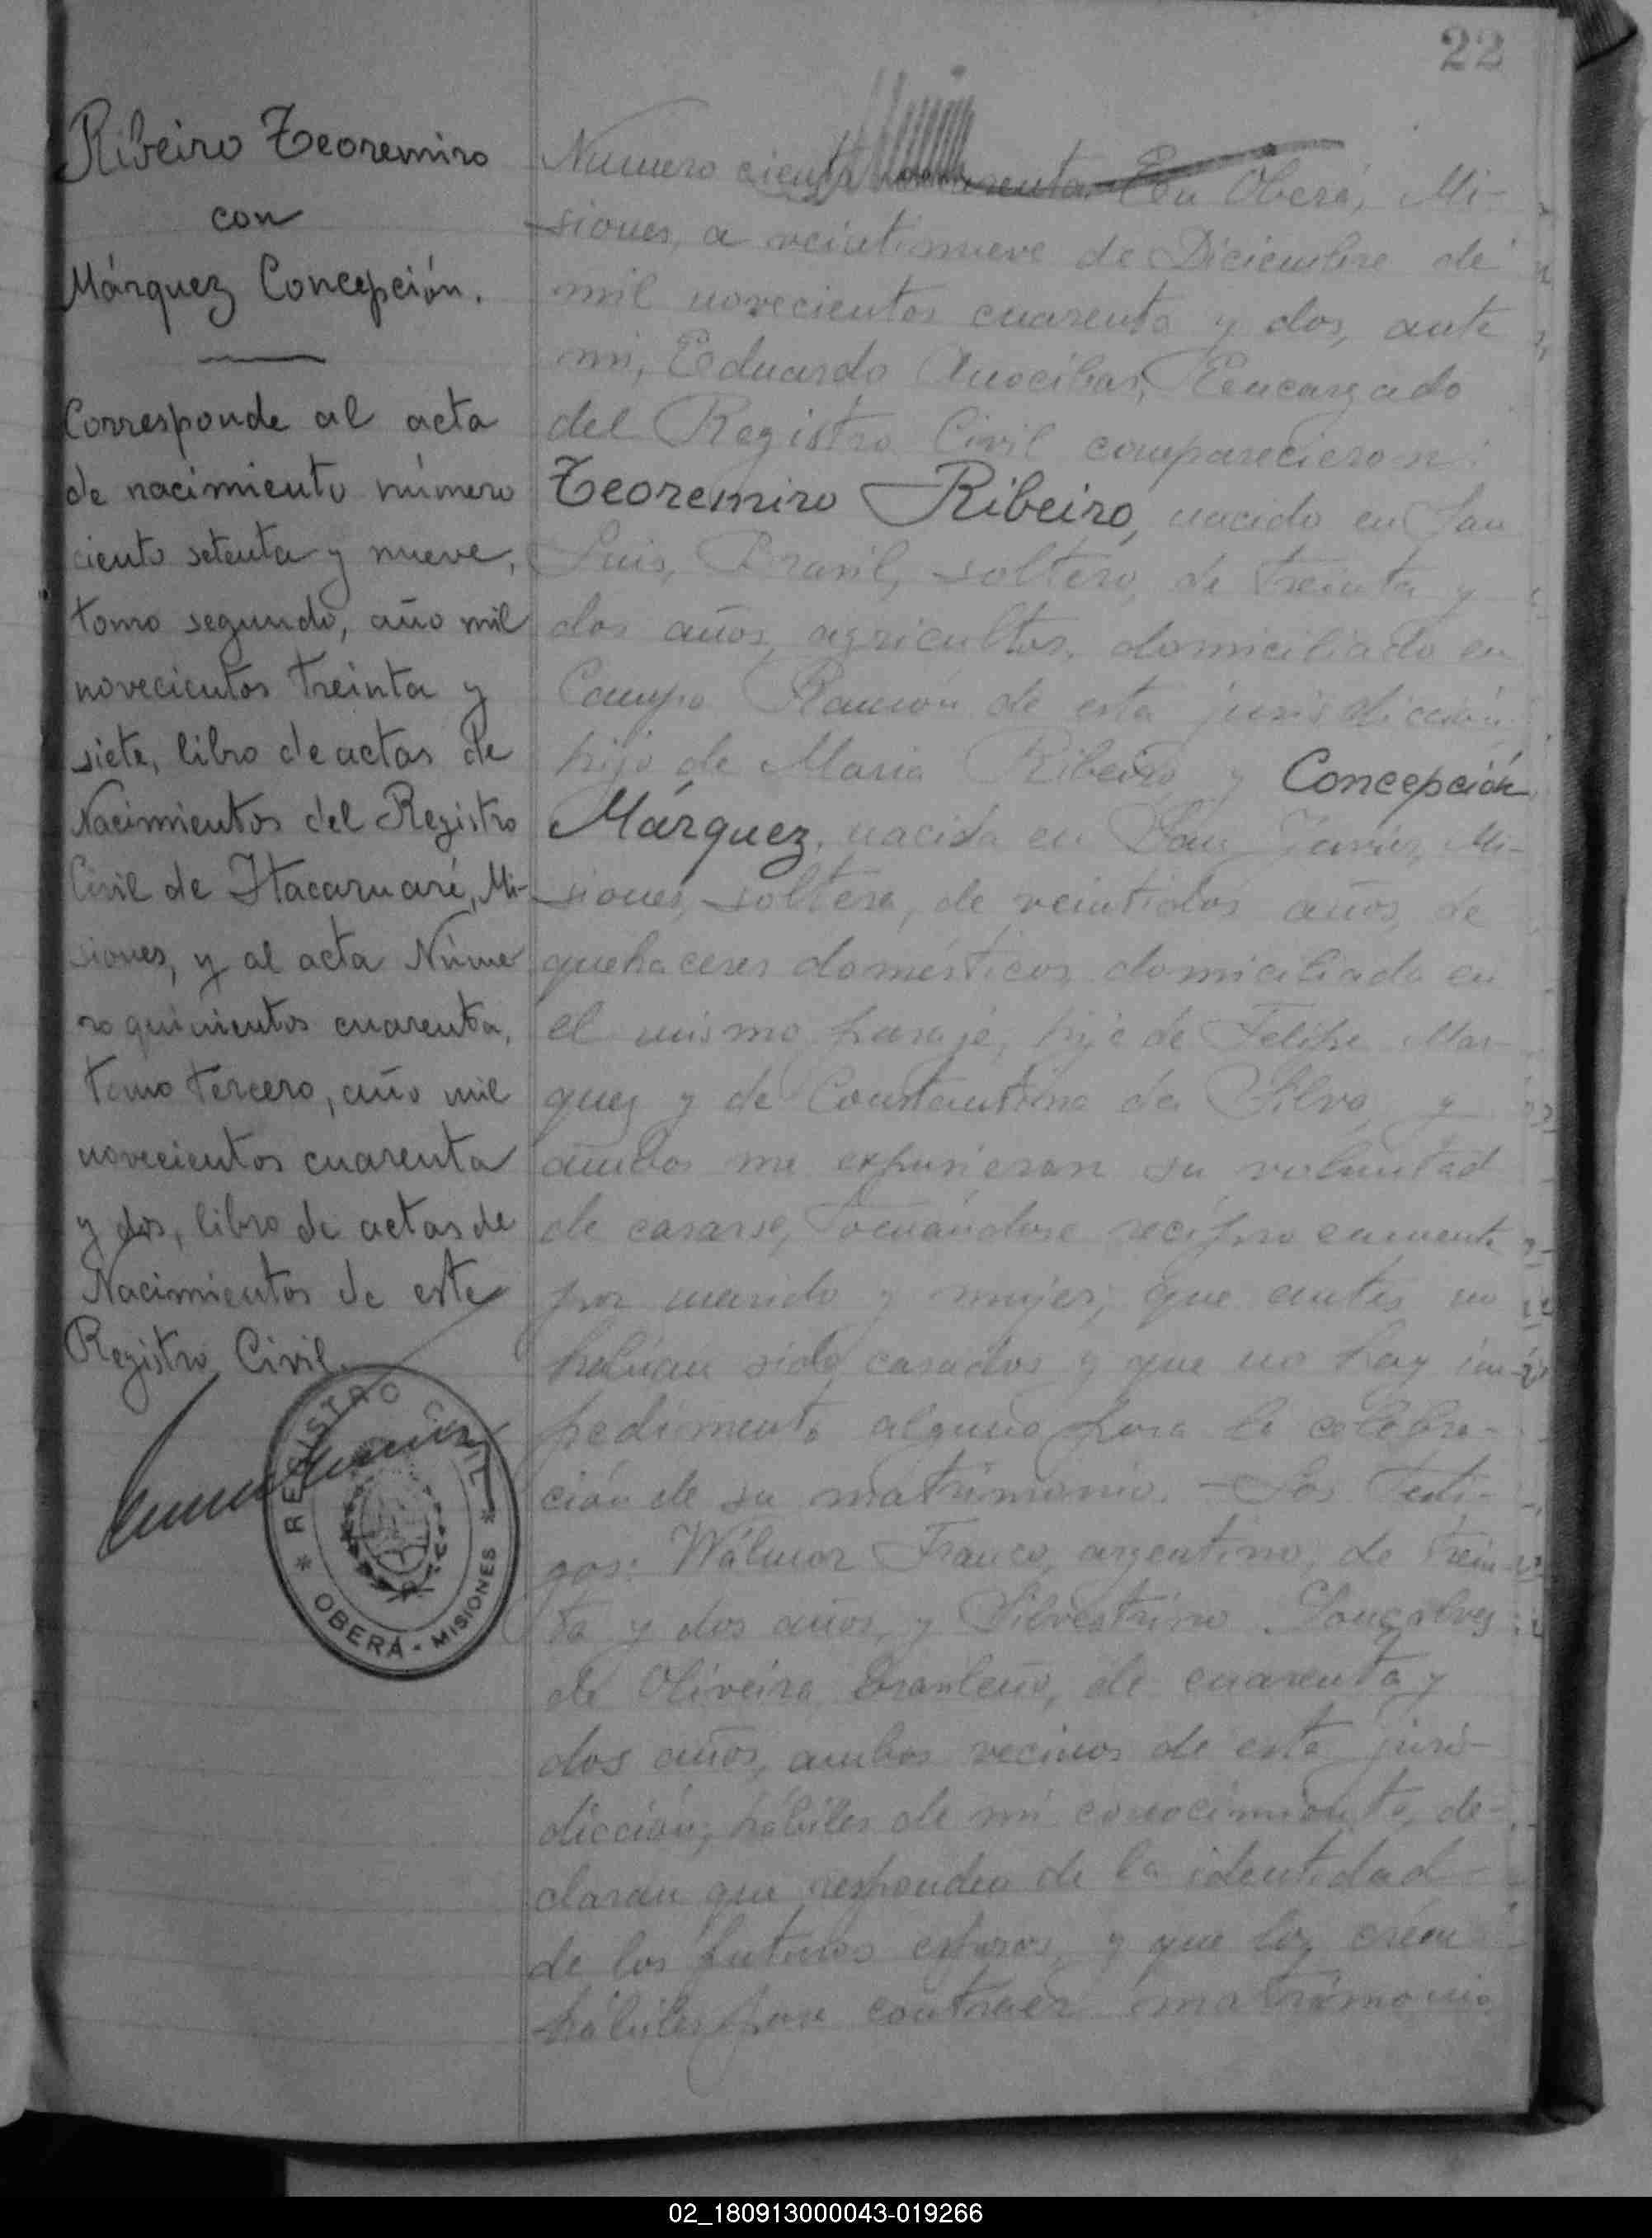 22
Ribeiro Teoremiro
con
Márquez Concepción.
Corresponde al acta
de nacimiento número
ciento setenta y nueve,
tomo segundo, año mil
novecientos treinta y
siete, libro de actas de
Nacimientos del Registro
Civil de Itacaruaré, Mi-
siones, y al acta Núme
ro quinientos cuarenta,
tomo tercero, año mil
novecientos cuarenta
y dos, libro de actas de
Nacimientos de este
Registro Civil.
REGISTRO CIVIL
* OBERÁ - MISIONES *
Numero ciento En Oberá, Mi-
siones, a veintinueve de Diciembre de
mil novecientos cuarenta y dos, ante
mi, Eduardo Encargado
del Registro Civil comparecieron:
Teoremiro Ribeiro, nacido en San
Luis, Brasil, soltero, de treinta y
dos años, agricultor, domiciliado en
Campo Ramón de esta jurisdicción
hijo de Maria Ribeiro y Concepción
Márquez, nacida en San Javier, Mi-
siones, soltera, de veintidos años, de
quehaceres domésticos, domiciliada en
el mismo paraje, hija de Felipe Mar-
quez y de Constantina da Silva, y
ambos me expusieron su voluntad
de casarse, tomándose recíprocamente
por marido y mujer; que antes no
habían sido casados y que no hay im-
pedimento alguno para la celebra-
ción de su matrimonio. - Los testi-
gos: Wálmor Franco, argentino, de trein-
ta y dos años, y Silvestrino Gonçalvez
de Oliveira, brasileño, de cuarenta y
dos años, ambos vecinos de esta juris-
dicción, hábiles de mi conocimiento, de-
claran que responden de la identidad
de los futuros esposos, y que los créen
hábiles para contraer matrimonio
02_180913000043-019266